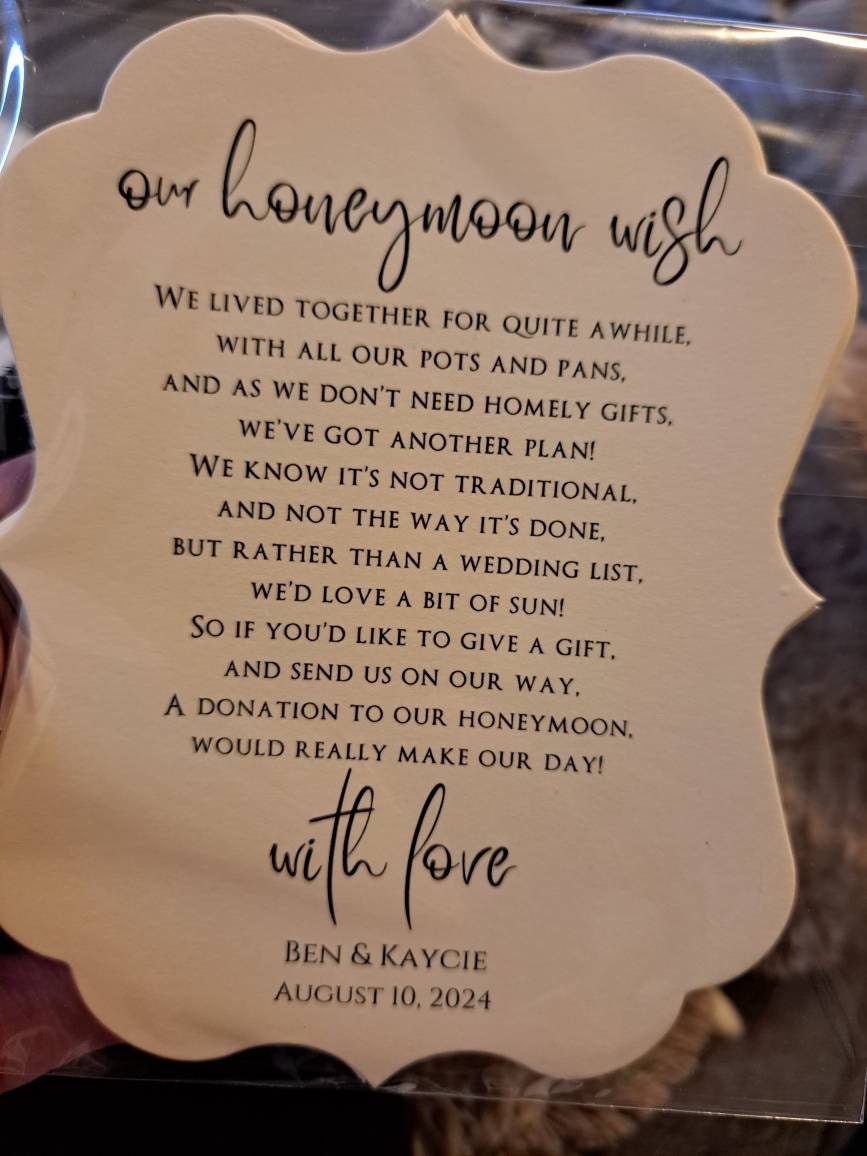 our honeymoon wish
We lived together for quite awhile,
with all our pots and pans,
and as we don't need homely gifts,
we've got another plan!
We know it's not traditional,
and not the way it's done,
but rather than a wedding list,
we'd love a bit of sun!
So if you'd like to give a gift,
and send us on our way,
A donation to our honeymoon,
would really make our day!
with love
Ben & Kaycie
August 10, 2024